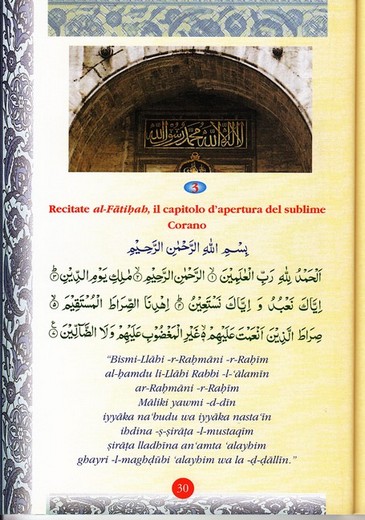 لا اله الا الله محمد رسول الله
3
Recitate al-Fātiḥah, il capitolo d'apertura del sublime
Corano
بِسْمِ اللهِ الرَّحْمٰنِ الرَّحِيْمِ
اَلْحَمْدُ لِلّٰهِ رَبِّ الْعٰلَمِيْنَ ۙ الرَّحْمٰنِ الرَّحِيْمِ ۙ مٰلِكِ يَوْمِ الدِّيْنِ ۗ
اِيَّاكَ نَعْبُدُ وَ اِيَّاكَ نَسْتَعِيْنُ ۗ اِهْدِنَا الصِّرَاطَ الْمُسْتَقِيْمَ ۙ
صِرَاطَ الَّذِيْنَ اَنْعَمْتَ عَلَيْهِمْ ۙ غَيْرِ الْمَغْضُوْبِ عَلَيْهِمْ وَلَا الضَّآلِّيْنَ
"Bismi-Llâhi -r-Raḥmâni -r-Raḥîm
al-ḥamdu li-Llâhi Rabbi -l-'âlamîn
ar-Raḥmâni -r-Raḥîm
Mâliki yawmi -d-dîn
iyyâka na'budu wa iyyâka nasta'în
ihdina -ṣ-ṣirâṭa -l-mustaqîm
ṣirâṭa lladhîna an'amta 'alayhim
ghayri -l-maghḍûbi 'alayhim wa la -ḍ-ḍâllîn."
30